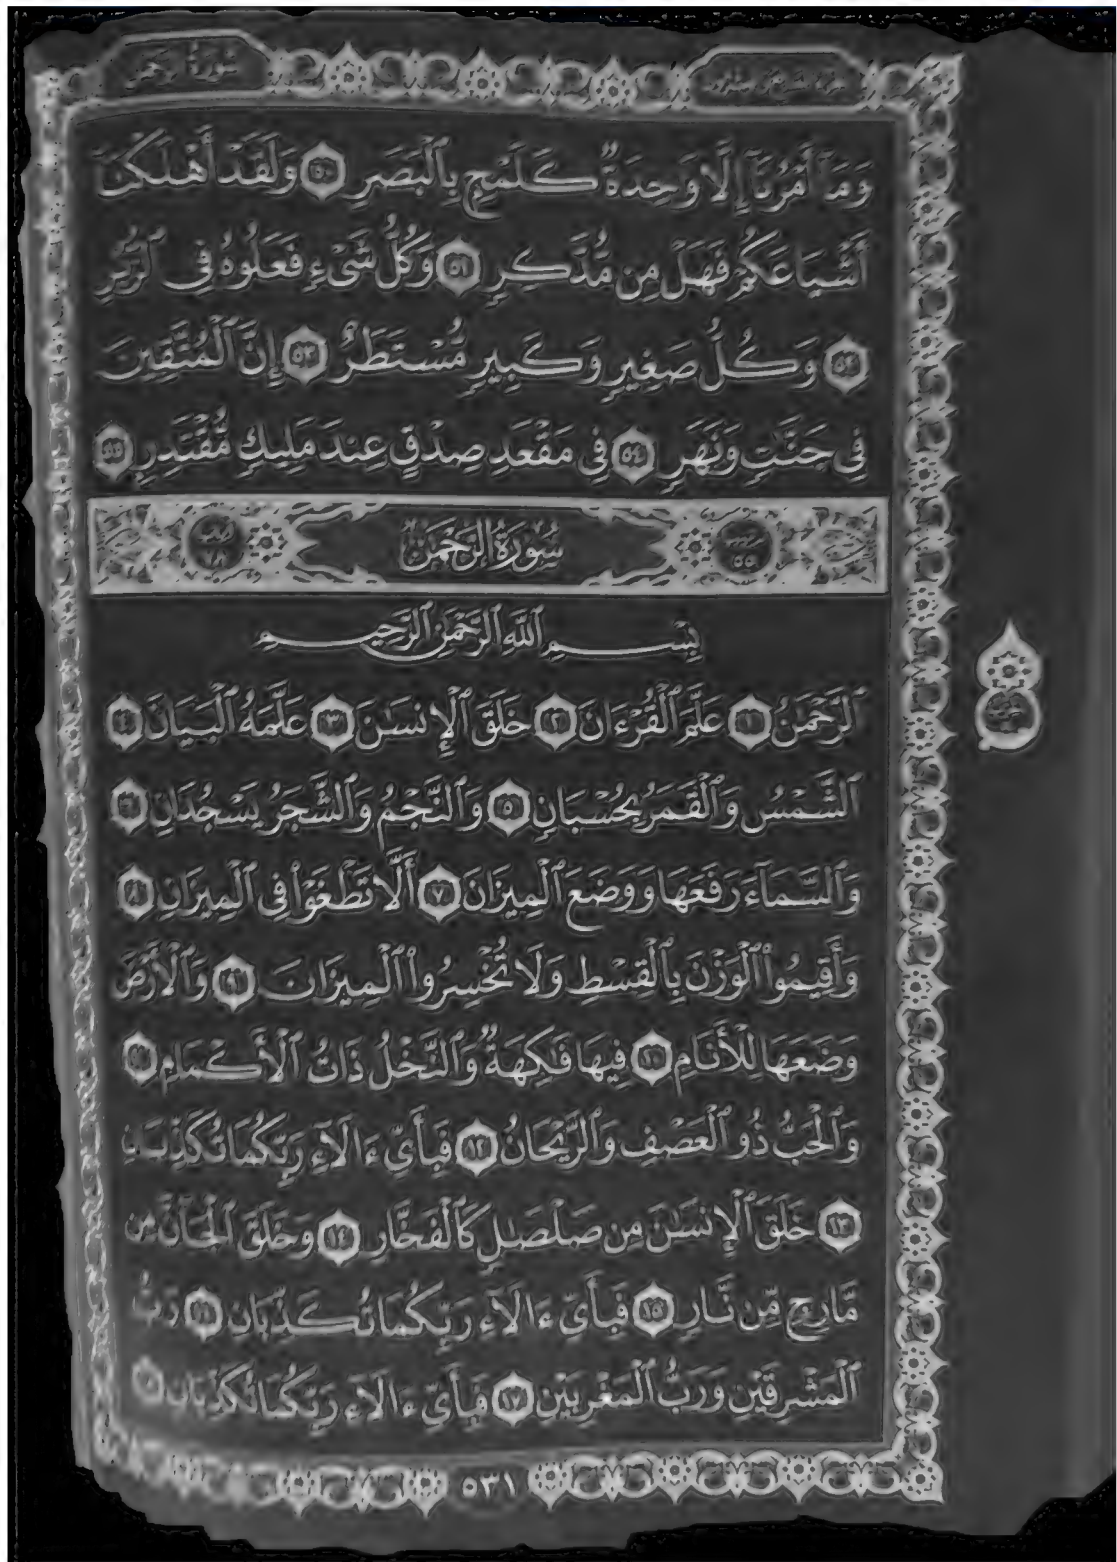 سورة الرحمن
وَمَآ أَمْرُنَآ إِلَّا وَٰحِدَةٌ كَلَمْحٍۭ بِٱلْبَصَرِ ٥٠ وَلَقَدْ أَهْلَكْنَآ
أَشْيَاعَكُمْ فَهَلْ مِن مُّدَّكِرٍ ٥١ وَكُلُّ شَىْءٍ فَعَلُوهُ فِى ٱلزُّبُرِ
٥٢ وَكُلُّ صَغِيرٍ وَكَبِيرٍ مُّسْتَطَرٌ ٥٣ إِنَّ ٱلْمُتَّقِينَ
فِى جَنَّٰتٍ وَنَهَرٍ ٥٤ فِى مَقْعَدِ صِدْقٍ عِندَ مَلِيكٍ مُّقْتَدِرٍۭ ٥٥
سُورَةُ الرَّحْمَٰن
بِسْمِ ٱللَّهِ ٱلرَّحْمَٰنِ ٱلرَّحِيمِ
ٱلرَّحْمَٰنُ ١ عَلَّمَ ٱلْقُرْءَانَ ٢ خَلَقَ ٱلْإِنسَٰنَ ٣ عَلَّمَهُ ٱلْبَيَانَ ٤
ٱلشَّمْسُ وَٱلْقَمَرُ بِحُسْبَانٍ ٥ وَٱلنَّجْمُ وَٱلشَّجَرُ يَسْجُدَانِ ٦
وَٱلسَّمَآءَ رَفَعَهَا وَوَضَعَ ٱلْمِيزَانَ ٧ أَلَّا تَطْغَوْا۟ فِى ٱلْمِيزَانِ ٨
وَأَقِيمُوا۟ ٱلْوَزْنَ بِٱلْقِسْطِ وَلَا تُخْسِرُوا۟ ٱلْمِيزَانَ ٩ وَٱلْأَرْضَ
وَضَعَهَا لِلْأَنَامِ ١٠ فِيهَا فَٰكِهَةٌ وَٱلنَّخْلُ ذَاتُ ٱلْأَكْمَامِ ١١
وَٱلْحَبُّ ذُو ٱلْعَصْفِ وَٱلرَّيْحَانُ ١٢ فَبِأَىِّ ءَالَآءِ رَبِّكُمَا تُكَذِّبَانِ
١٣ خَلَقَ ٱلْإِنسَٰنَ مِن صَلْصَٰلٍ كَٱلْفَخَّارِ ١٤ وَخَلَقَ ٱلْجَآنَّ مِن
مَّارِجٍ مِّن نَّارٍ ١٥ فَبِأَىِّ ءَالَآءِ رَبِّكُمَا تُكَذِّبَانِ ١٦ رَبُّ
ٱلْمَشْرِقَيْنِ وَرَبُّ ٱلْمَغْرِبَيْنِ ١٧ فَبِأَىِّ ءَالَآءِ رَبِّكُمَا تُكَذِّبَانِ ١٨
٥٣١